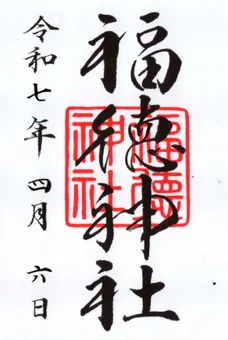 福徳神社
令和七年 四月 六日
福徳神社